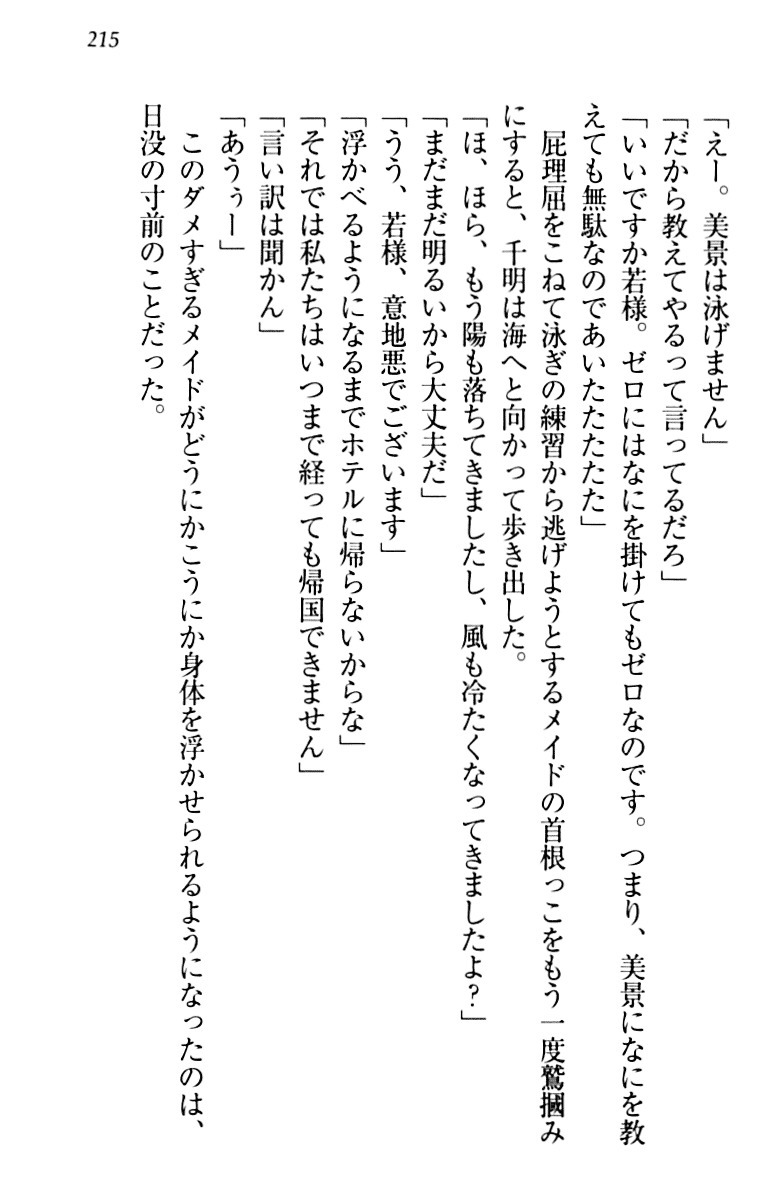 215
「えー。美景は泳げません」
「だから教えてやるって言ってるだろ」
「いいですか若様。ゼロにはなにを掛けてもゼロなのです。つまり、美景になにを教
えても無駄なのであいたたたたた」
屁理屈をこねて泳ぎの練習から逃げようとするメイドの首根っこをもう一度鷲摑み
にすると、千明は海へと向かって歩き出した。
「ほ、ほら、もう陽も落ちてきましたし、風も冷たくなってきましたよ？」
「まだまだ明るいから大丈夫だ」
「うう、若様、意地悪でございます」
「浮かべるようになるまでホテルに帰らないからな」
「それでは私たちはいつまで経っても帰国できません」
「言い訳は聞かん」
「あうぅー」
このダメすぎるメイドがどうにかこうにか身体を浮かせられるようになったのは、
日没の寸前のことだった。